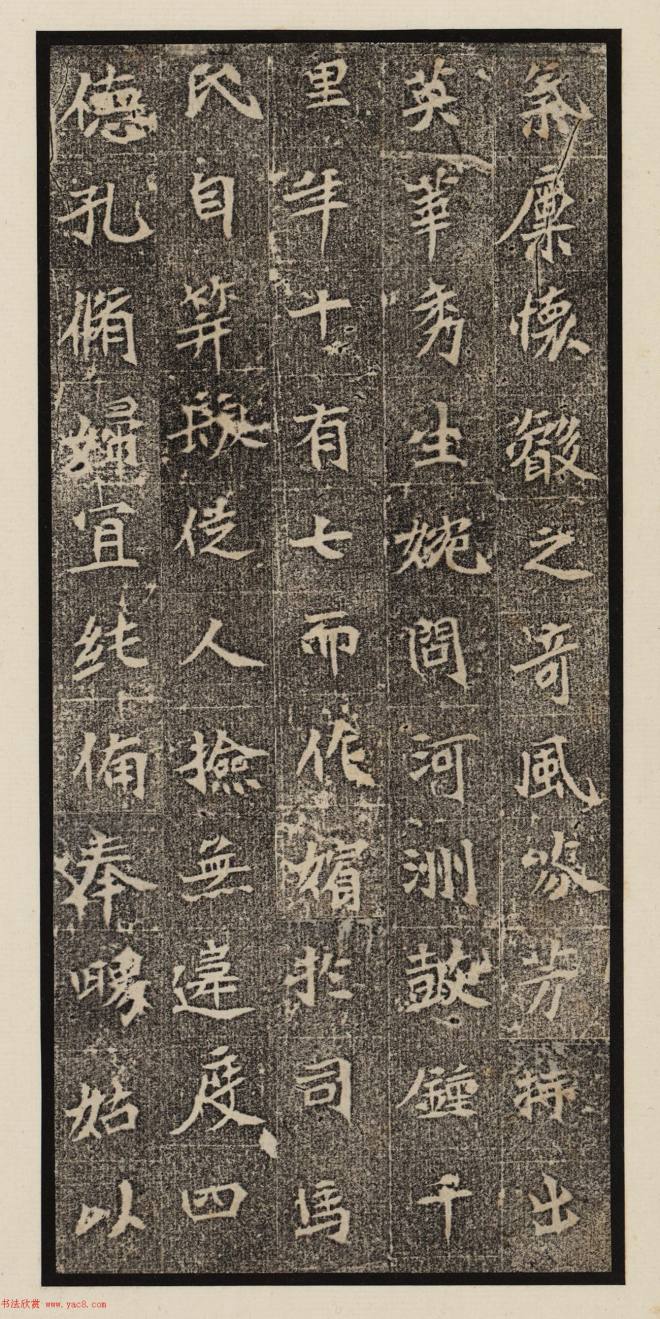 氣稟懷叡之奇風啄芳特出
英華秀生婉問河洲鼓鍾千
里年十有七而作嬪於司馬
氏自笄從人撿無違度四
德孔脩婦宜純備奉舅姑以
书法欣赏 www.yac8.com